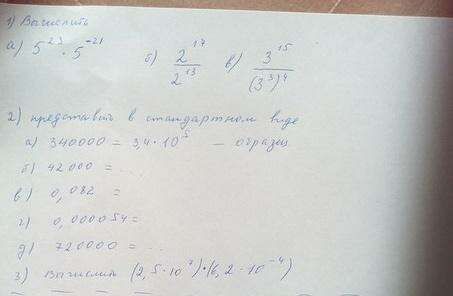 1) Вычислить
а) 5²³ · 5⁻²¹ б) 2¹⁷/2¹³ в) 3¹⁵/(3³)⁴
2) представить в стандартном виде
а) 340000 = 3,4·10⁵ – образец
б) 42000 = ...
в) 0,082 =
г) 0,000054 =
д) 720000 = ...
3) Вычислить (2,5·10⁷)·(6,2·10⁻⁴)